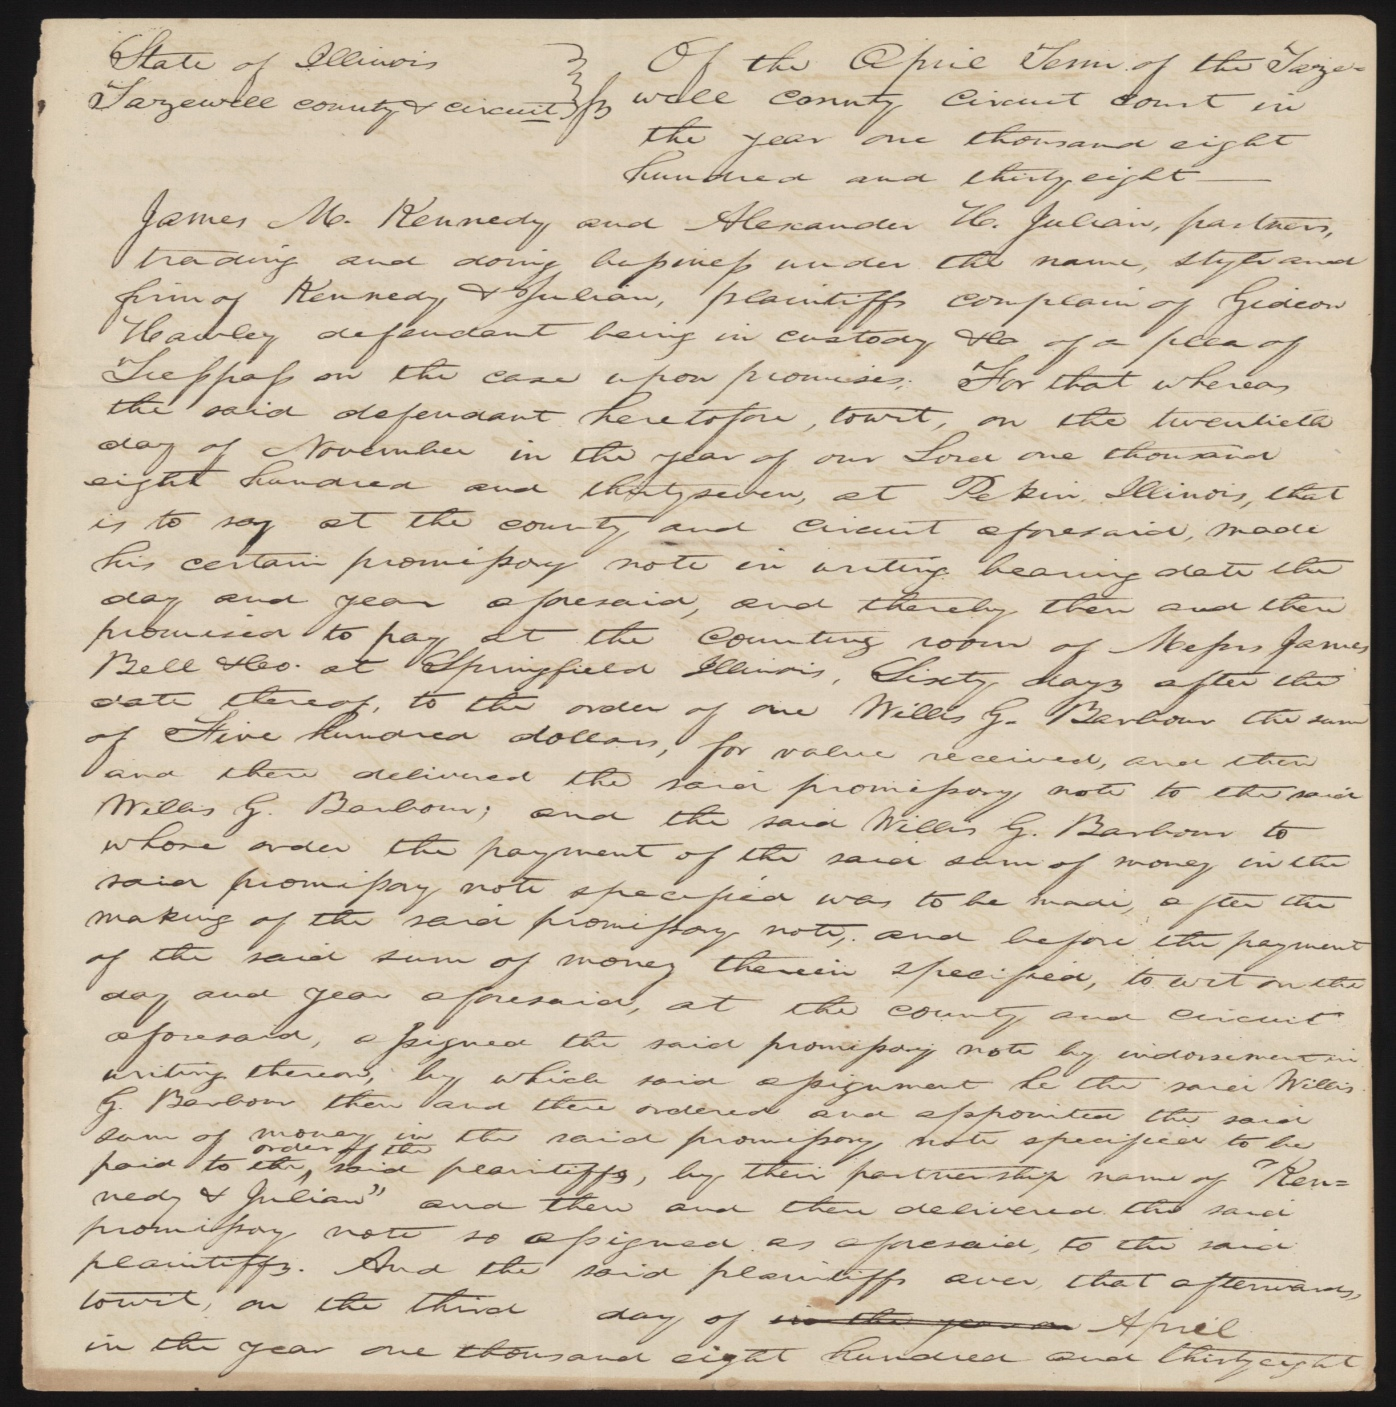 State of Illinois
Tazewell county & circuit } ss
Of the April Term of the Taze=
well county circuit court in
the year one thousand eight
hundred and thirty eight —
James M. Kennedy and Alexander H. Julian, partners,
trading and doing business under the name, style and
firm of Kennedy & Julian, plaintiffs complain of Gideon
Hawley defendant being in custody &c of a plea of
Trespass on the case upon promises: For that whereas
the said defendant heretofore, towit, on the twentieth
day of November in the year of our Lord one thousand
eight hundred and thirty seven, at Pekin Illinois, that
is to say at the county and circuit aforesaid, made
his certain promissory note in writing bearing date the
day and year aforesaid, and thereby then and there
promised to pay at the Counting room of Messrs James
Bell & Co. at Springfield Illinois, Sixty days after the
date thereof, to the order of one Willis G. Barbour the sum
of Five hundred dollars, for value received, and then
and there delivered the said promissory note to the said
Willis G. Barbour; and the said Willis G. Barbour to
whose order the payment of the said sum of money in the
said promissory note specified was to be made, after the
making of the said promissory note, and before the payment
of the said sum of money therein specified, to wit on the
day and year aforesaid, at the county and circuit
aforesaid, assigned the said promissory note by indorsement in
writing thereon, by which said assignment he the said Willis
G. Barbour then and there ordered and appointed the said
sum of money in the said promissory note specified to be
paid to the order of the said plaintiffs, by their partnership name of "Ken=
nedy & Julian" and then and there delivered the said
promissory note so assigned as aforesaid, to the said
plaintiffs. And the said plaintiffs aver, that afterwards,
towit, on the third day of in the year on April
in the year one thousand eight hundred and thirty eight